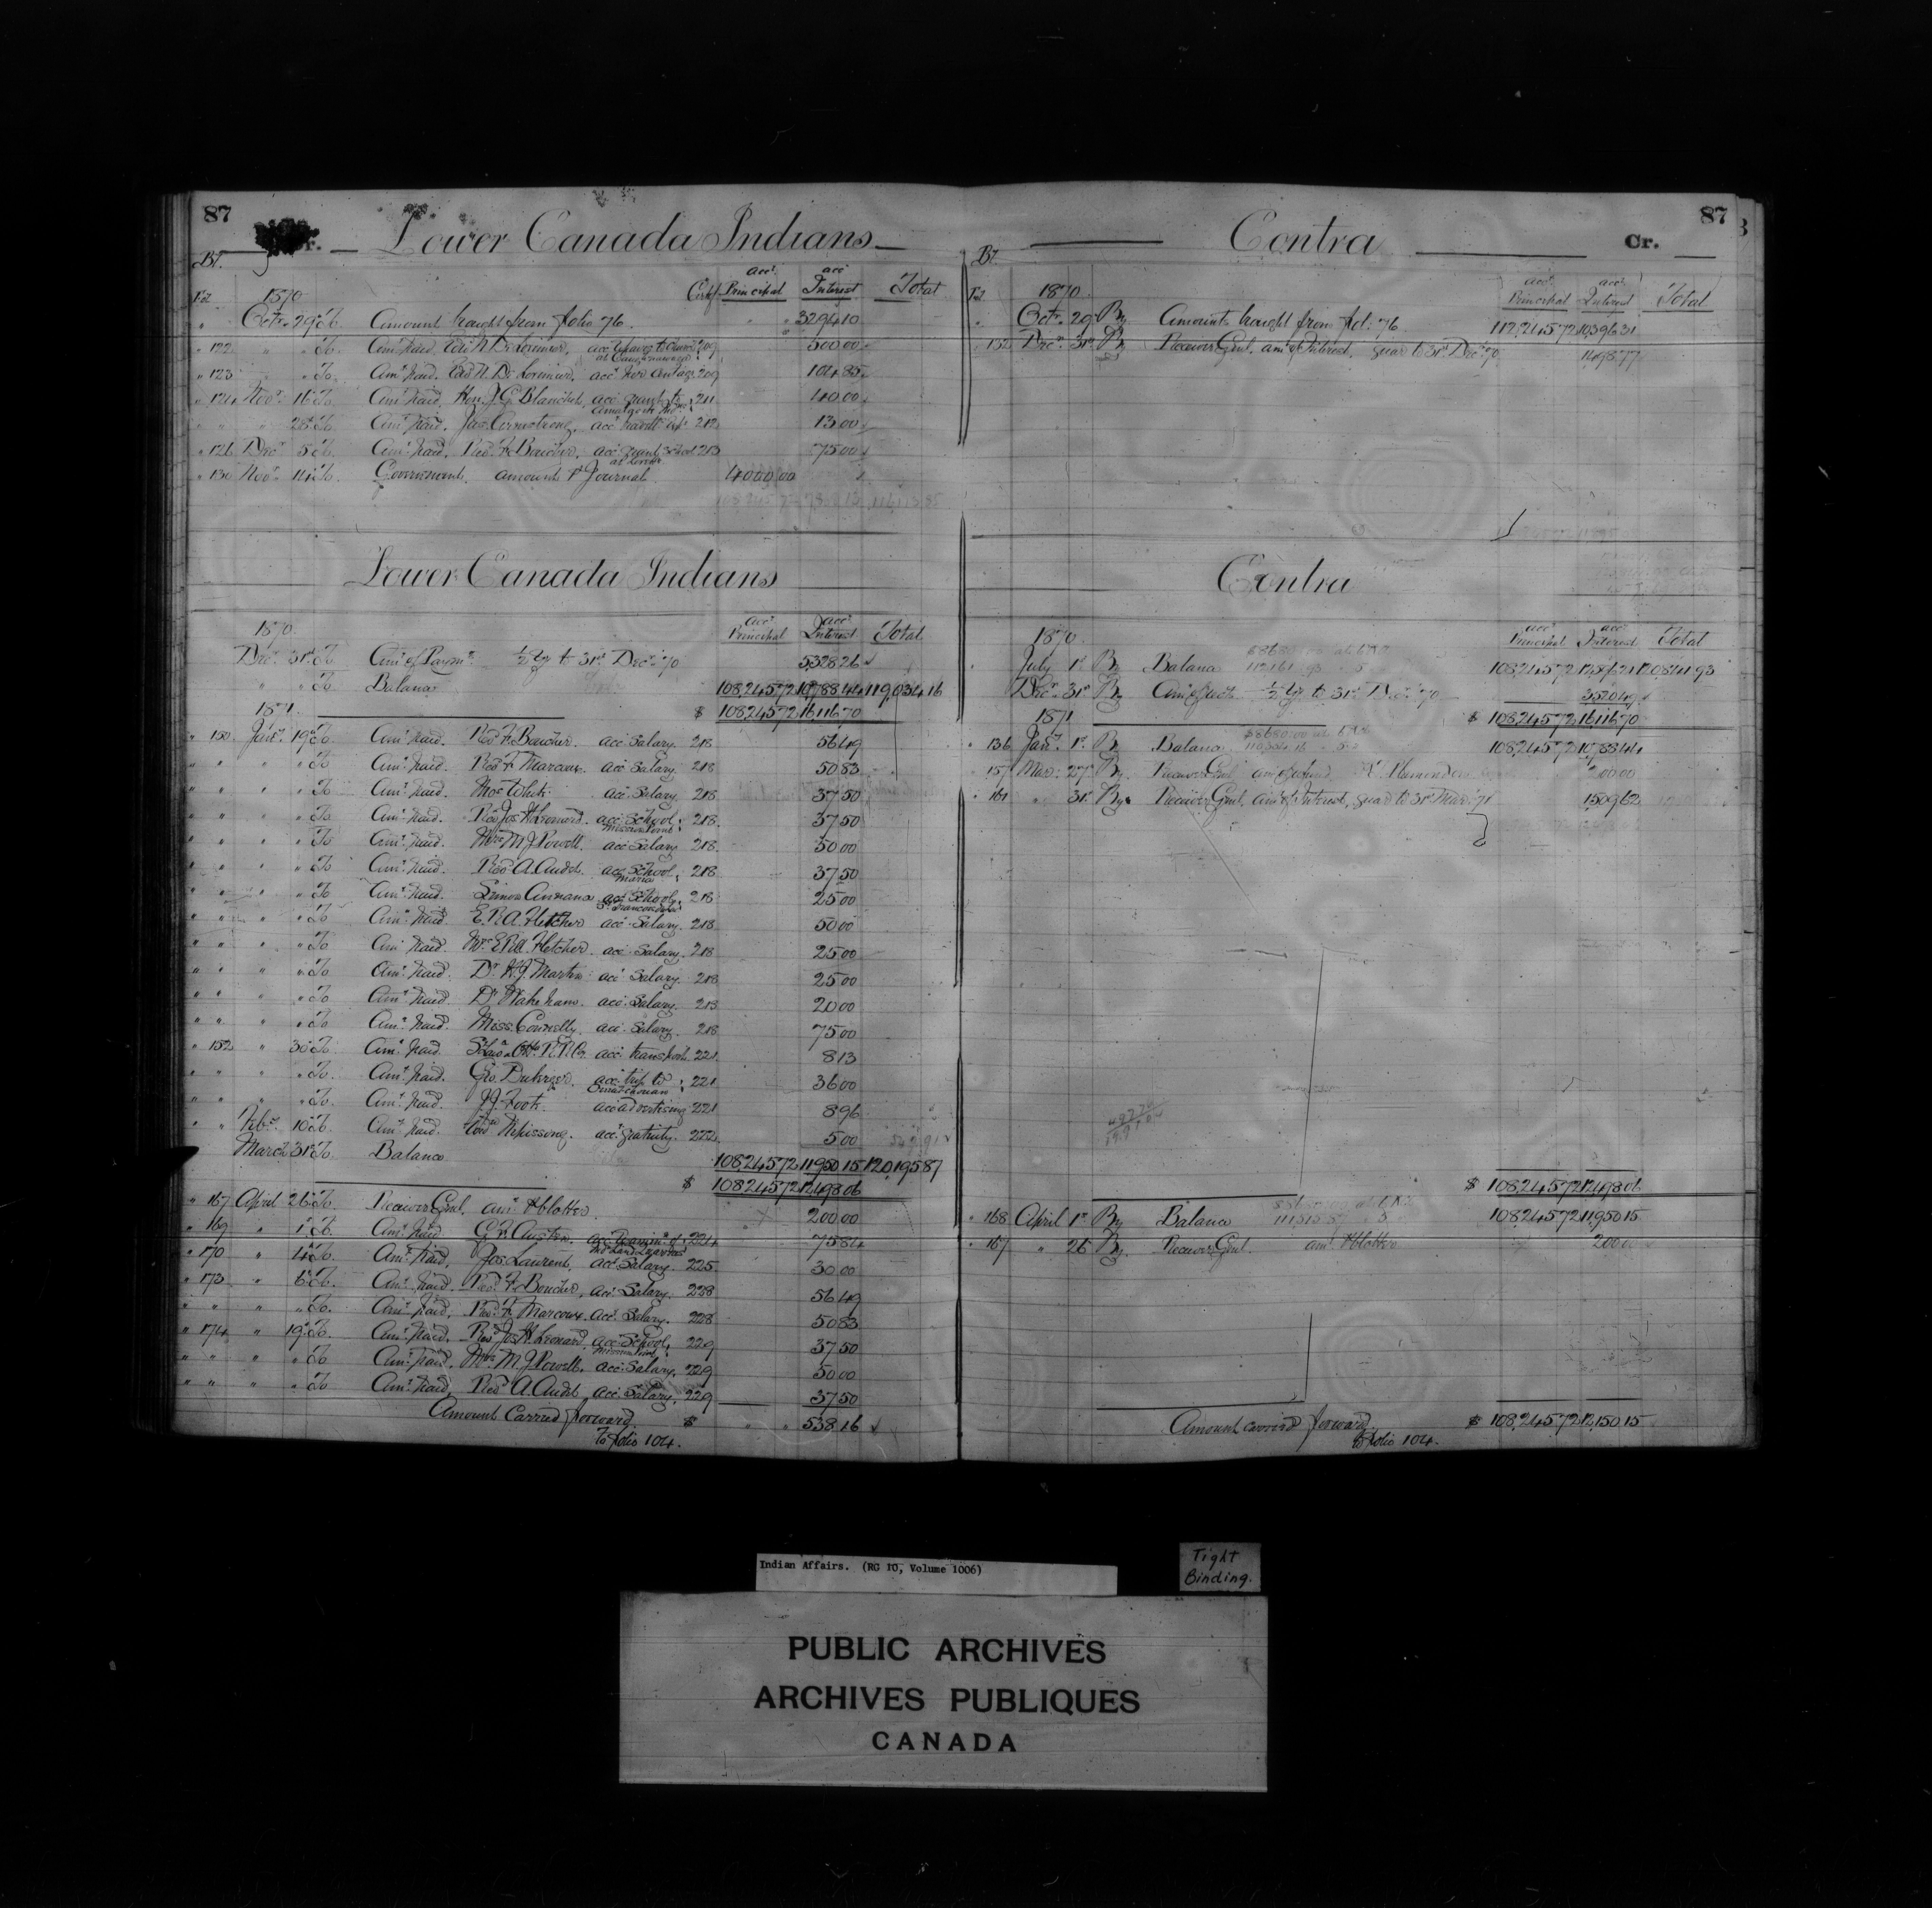 87
Dr. Lower Canada Indians
Bt. Fol 1870 Certf. acct. Principal acct. Interest Total
" Octr. 29 To Amount brought from folio 76. " " 3294 10
" 122 " " To Amt. paid, 209 500 00
" 123 " " To Amt. paid. acct. 209 104 85
" 124 Novr. 16 To Amt. paid, Hon. J. G. Blanchet, acct. grant to 211 40 00
" " " 28 To Amt. paid, Jas. Armstrong, acct. 212 13 00
" 126 Decr. 5 To Amt. paid, Revd. F. Boucher, acct. school 213 75 00
" 130 Novr. 14 To Government, amount pr. Journal. 4000 00
Lower Canada Indians
1870 acct. Principal acct. Interest Total
Decr. 31st To Amt. of Paymts. ½ yr to 31st Decr. '70 5,328 26
" " To Balance 108,245 72 10,788 44 119,034 16
1871 $ 108,245 72 16,116 70
" 150 Jany. 19 To Amt. paid. Revd. F. Boucher. acct. Salary. 218 56 49
" " " " To Amt. paid. Revd. F. Marcoux. acct. Salary. 218 50 83
" " " " To Amt. paid. White acct. Salary 218 37 50
" " " " To Amt. paid. Revd. Jos. H. Leonard. acct. School, 218 37 50
" " " " To Amt. paid. Mrs. M. J. Powell. acct. Salary 218 50 00
" " " " To Amt. paid. Revd. A. Audet. acct. School, Maria 218 37 50
" " " " To Amt. paid. Simon Annance acct. School, 218 25 00
" " " " To Amt. paid. E. R. A. Fletcher acct. Salary. 218 50 00
" " " " To Amt. paid. Mrs. E. R. A. Fletcher. acct. Salary. 218 25 00
" " " " To Amt. paid. Dr. H. J. Martin acct. Salary. 218 25 00
" " " " To Amt. paid. Dr. Wakeham. acct. Salary. 218 20 00
" " " " To Amt. paid. Miss. Connelly. acct. Salary. 218 75 00
" 152 " 30 To Amt. paid. St. Law. & Otta. R. R. Co. acct. transport. 221 8 13
" " " " To Amt. paid. Geo. Duberger. acct. trip to 221 36 00
" " " " To Amt. paid. J. J. Foote. acct. advertising 221 8 96
" " Feby. 10 To Amt. paid. Nipissong. acct. gratuity. 222 5 00
March 31st To Balance 108,245 72 11,950 15 120,195 87
$ 108,245 72 12,498 06
" 167 April 26 To Receiver Genl. amt. pr. blotter. 200 00
" 169 " 1st To Amt. paid G. F. Austin. acct. Examinn. of Ind. Land Surveys 224 75 84
" 170 " 4 To Amt. paid, Jos. Laurent. acct. Salary. 225 30 00
" 173 " 6 To Amt. paid. Revd. F. Boucher, acct. Salary. 228 56 49
" " " " To Amt. paid. Revd. F. Marcoux. acct. Salary. 228 50 83
" 174 " 19 To Amt. paid. Revd. Jos. H. Leonard, acct. School, 229 37 50
" " " " To Amt. paid. Mrs. M. J. Powell. acct. Salary, 229 50 00
" " " " To Amt. paid, Revd. A. Audet, acct. Salary, 229 37 50
Amount Carried forward $ " " 538 16
to folio 104.
87
Contra Cr.
Bt. Fol 1870 acct. Principal acct. Interest Total
" Octr. 29 By Amounts brought from fol: 76. 112,245 72 10,396 31
" 132 Decr. 31st By Receiver Genl. amt. of Interest, quar to 31st Decr. '70 1,498 77
Contra
1870 acct. Principal acct. Interest Total
July 1st By Balance 108,245 72 12,596 21 120,841 93
Decr. 31st By Amt. of ½ yr to 31st Decr. '70 3520 49
1871 $ 108,245 72 16,116 70
" 136 Jany. 1st By Balance 108,245 72 10,788 44
" 157 Mar. 27 By. Receiver Genl. amt. of refund 200 00
" 161 " 31st By Receiver Genl. amt. of Interest, quar to 31st Mar. '71 1,509 62
$ 108,245 72 12,498 06
" 168 April 1st By Balance 108,245 72 11,950 15
" 167 " 26 By. Receiver Genl. amt. pr. blotter 200 00
Amount carried forward. $ 108,245 72 12,150 15
to folio 104.
Indian Affairs. (RG 10, Volume 1006)
Tight
Binding.
PUBLIC ARCHIVES
ARCHIVES PUBLIQUES
CANADA